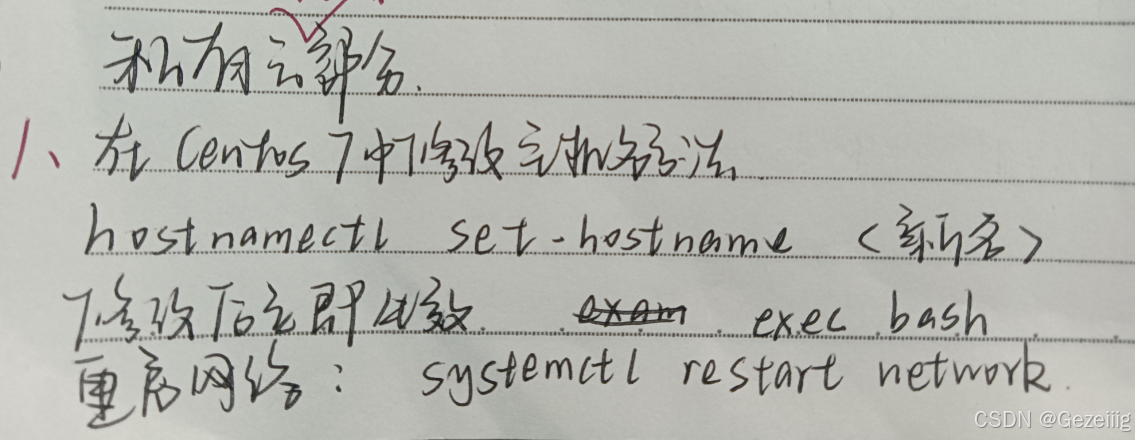 私有云部分.
1、在 Centos 7中修改主机名方法
hostnamectl set-hostname <新名>
修改后立即生效. exam exec bash
重启网络: systemctl restart network.
CSDN @Gezeiiig